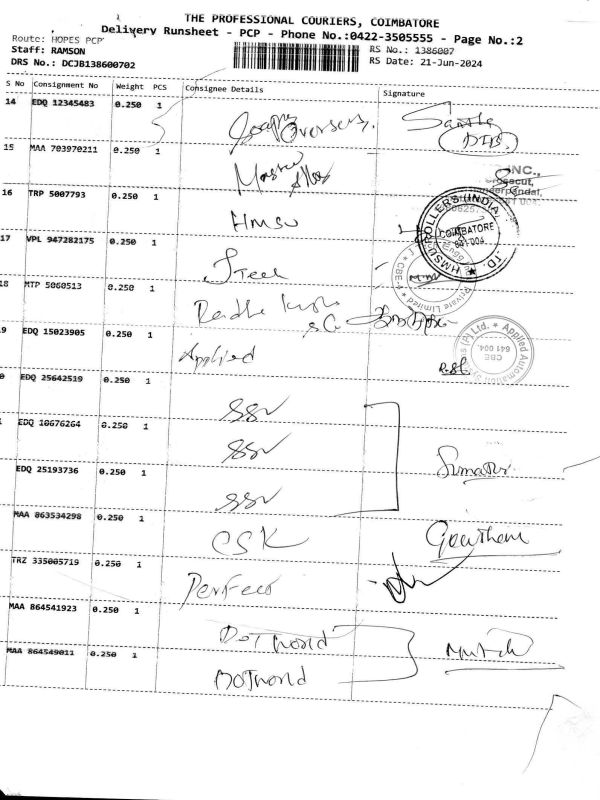 THE PROFESSIONAL COURIERS, COIMBATORE
Delivery Runsheet - PCP - Phone No.:0422-3505555 - Page No.:2
Route: HOPES PCP
Staff: RAMSON
DRS No.: DCJB138600702
RS No.: 1386007
RS Date: 21-Jun-2024
S No Consignment No Weight PCS Consignee Details Signature
14 EDQ 12345483 0.250 1 Overseas.
15 MAA 703970211 0.250 1
16 TRP 5007793 0.250 1 HMSU
17 VPL 947282175 0.250 1 Steel
18 MTP 5060513 0.250 1 Radhe
9 EDQ 15023905 0.250 1 Applied
0 EDQ 25642519 0.250 1 SSV
EDQ 10676264 0.250 1 SSV
EDQ 25193736 0.250 1 SSV
MAA 863534298 0.250 1 CSK Gowtham
TRZ 335005719 0.250 1 Perfect
MAA 864541923 0.250 1 Dotworld
MAA 864549011 0.250 1 Dotworld
INC.,
COIMBATORE
641 004.
Private Limited
(P) Ltd. * Applied Automation
CBE
641 004.